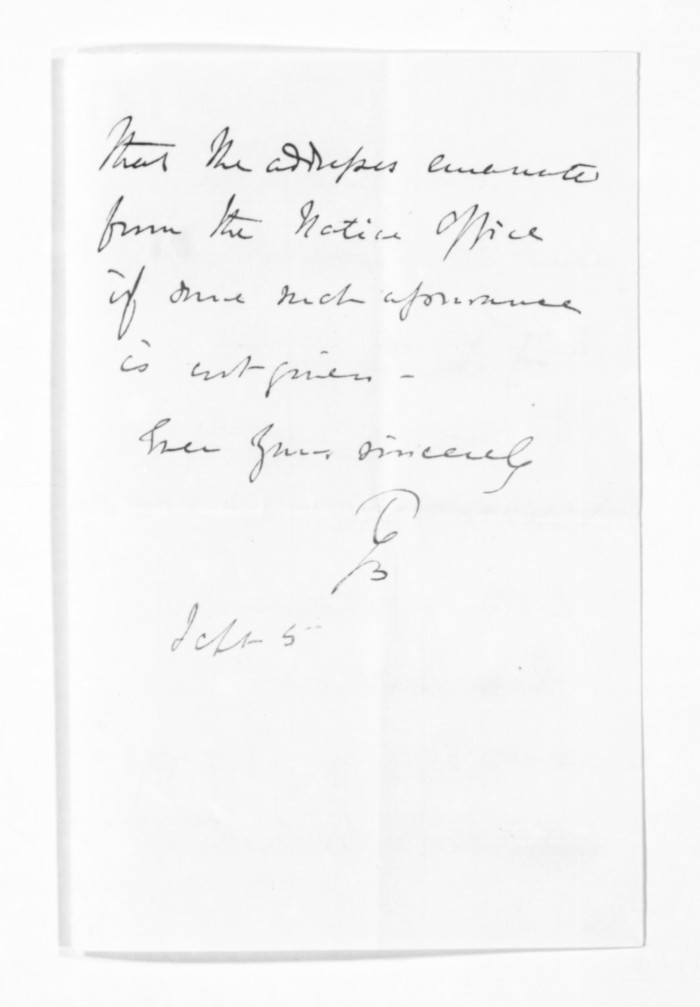 that the addresses emanate
from the Native Office
if some such assurance
is not given -
Ever yrs. sincerely
GB
Sept 5